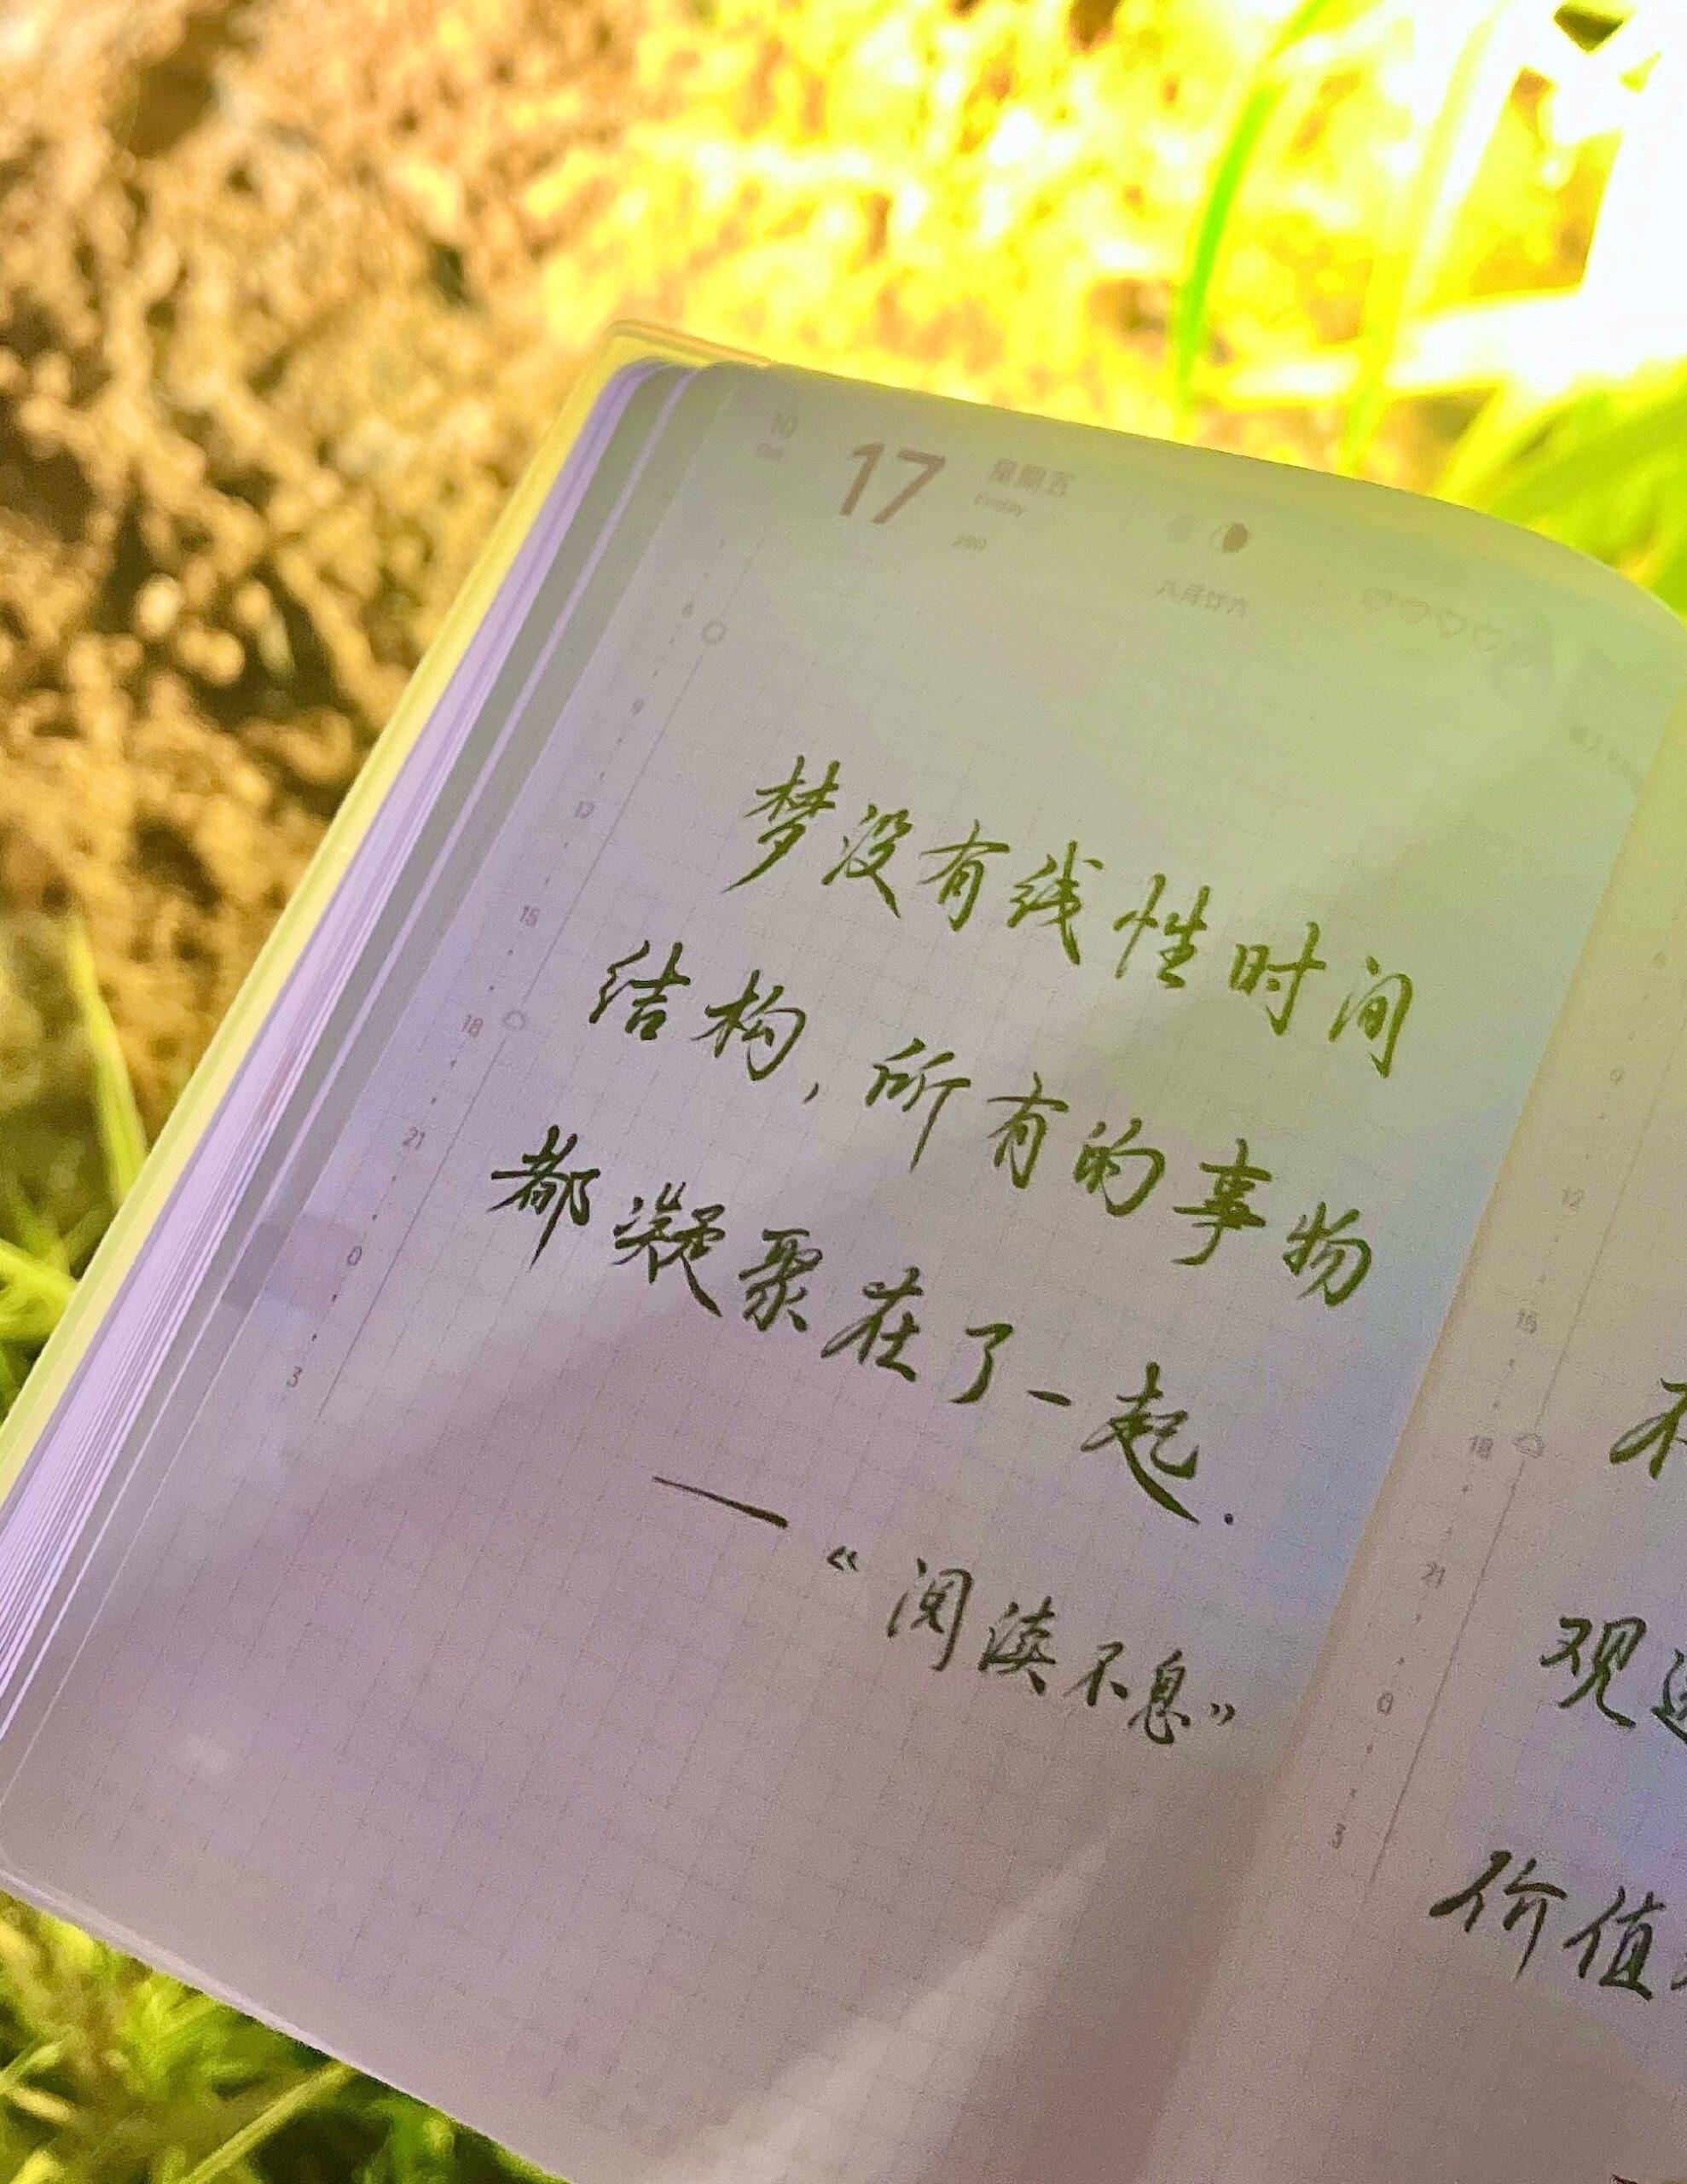 10
Oct
17
星期五
Friday
290
八月廿六
6
9
12
15
18
21
0
3
梦没有线性时间
结构,所有的事物
都凝聚在了一起.
—《阅读不息》
9
12
15
18
21
0
3
不
观
价值